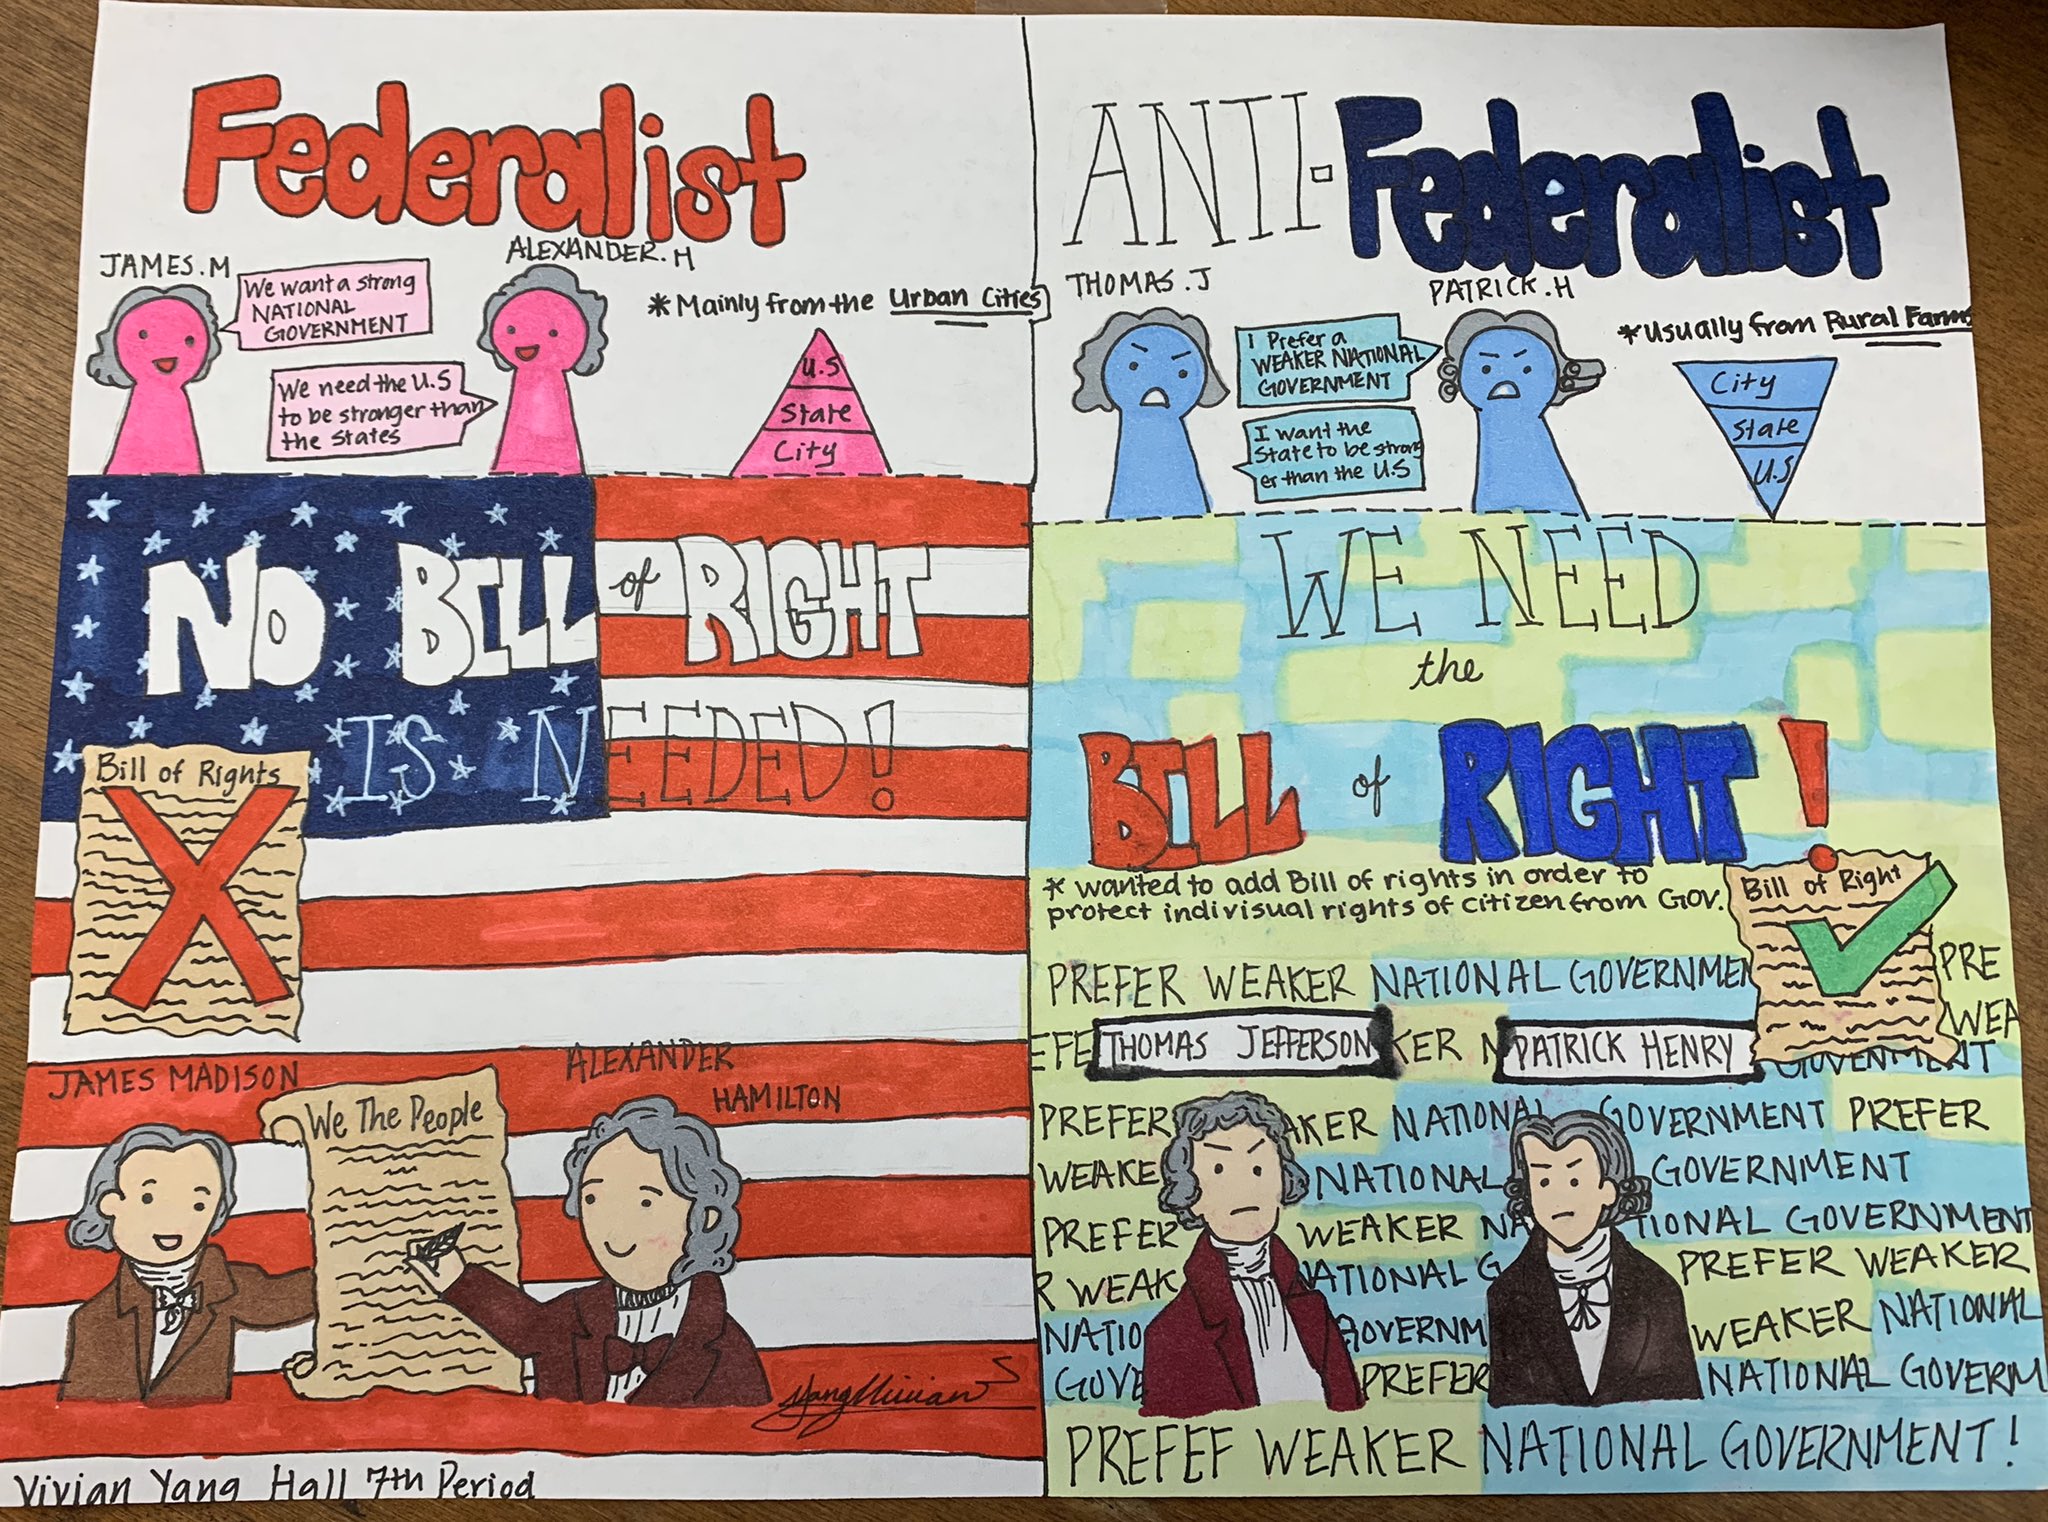 Federalist
JAMES.M
ALEXANDER.H
We want a strong
NATIONAL
GOVERNMENT
We need the U.S
to be stronger than
the states
*Mainly from the Urban Cities
U.S
State
City
NO BILL of RIGHT
IS NEEDED!
Bill of Rights
JAMES MADISON
ALEXANDER
HAMILTON
We The People
Yang Vivian
Vivian Yang Hall 7th Period
ANTI-Federalist
THOMAS.J
PATRICK.H
I Prefer a
WEAKER NATIONAL
GOVERNMENT
I want the
State to be strong
er than the U.S
*Usually from Rural Farms
City
State
U.S
WE NEED
the
BILL of RIGHT!
* wanted to add Bill of rights in order to
protect indivisual rights of citizen from GOV.
Bill of Right
PREFER WEAKER NATIONAL GOVERNMEN PRE
EFE KER N WEA
THOMAS JEFFERSON
PATRICK HENRY
GOVERNMENT
PREFER AKER NATIONAL GOVERNMENT PREFER
WEAKE NATIONAL GOVERNMENT
PREFER WEAKER NA TIONAL GOVERNMENT
R WEAK NATIONAL G PREFER WEAKER
NATIO GOVERNM WEAKER NATIONAL
GOVE PREFER NATIONAL GOVERNM
PREFEF WEAKER NATIONAL GOVERNMENT!